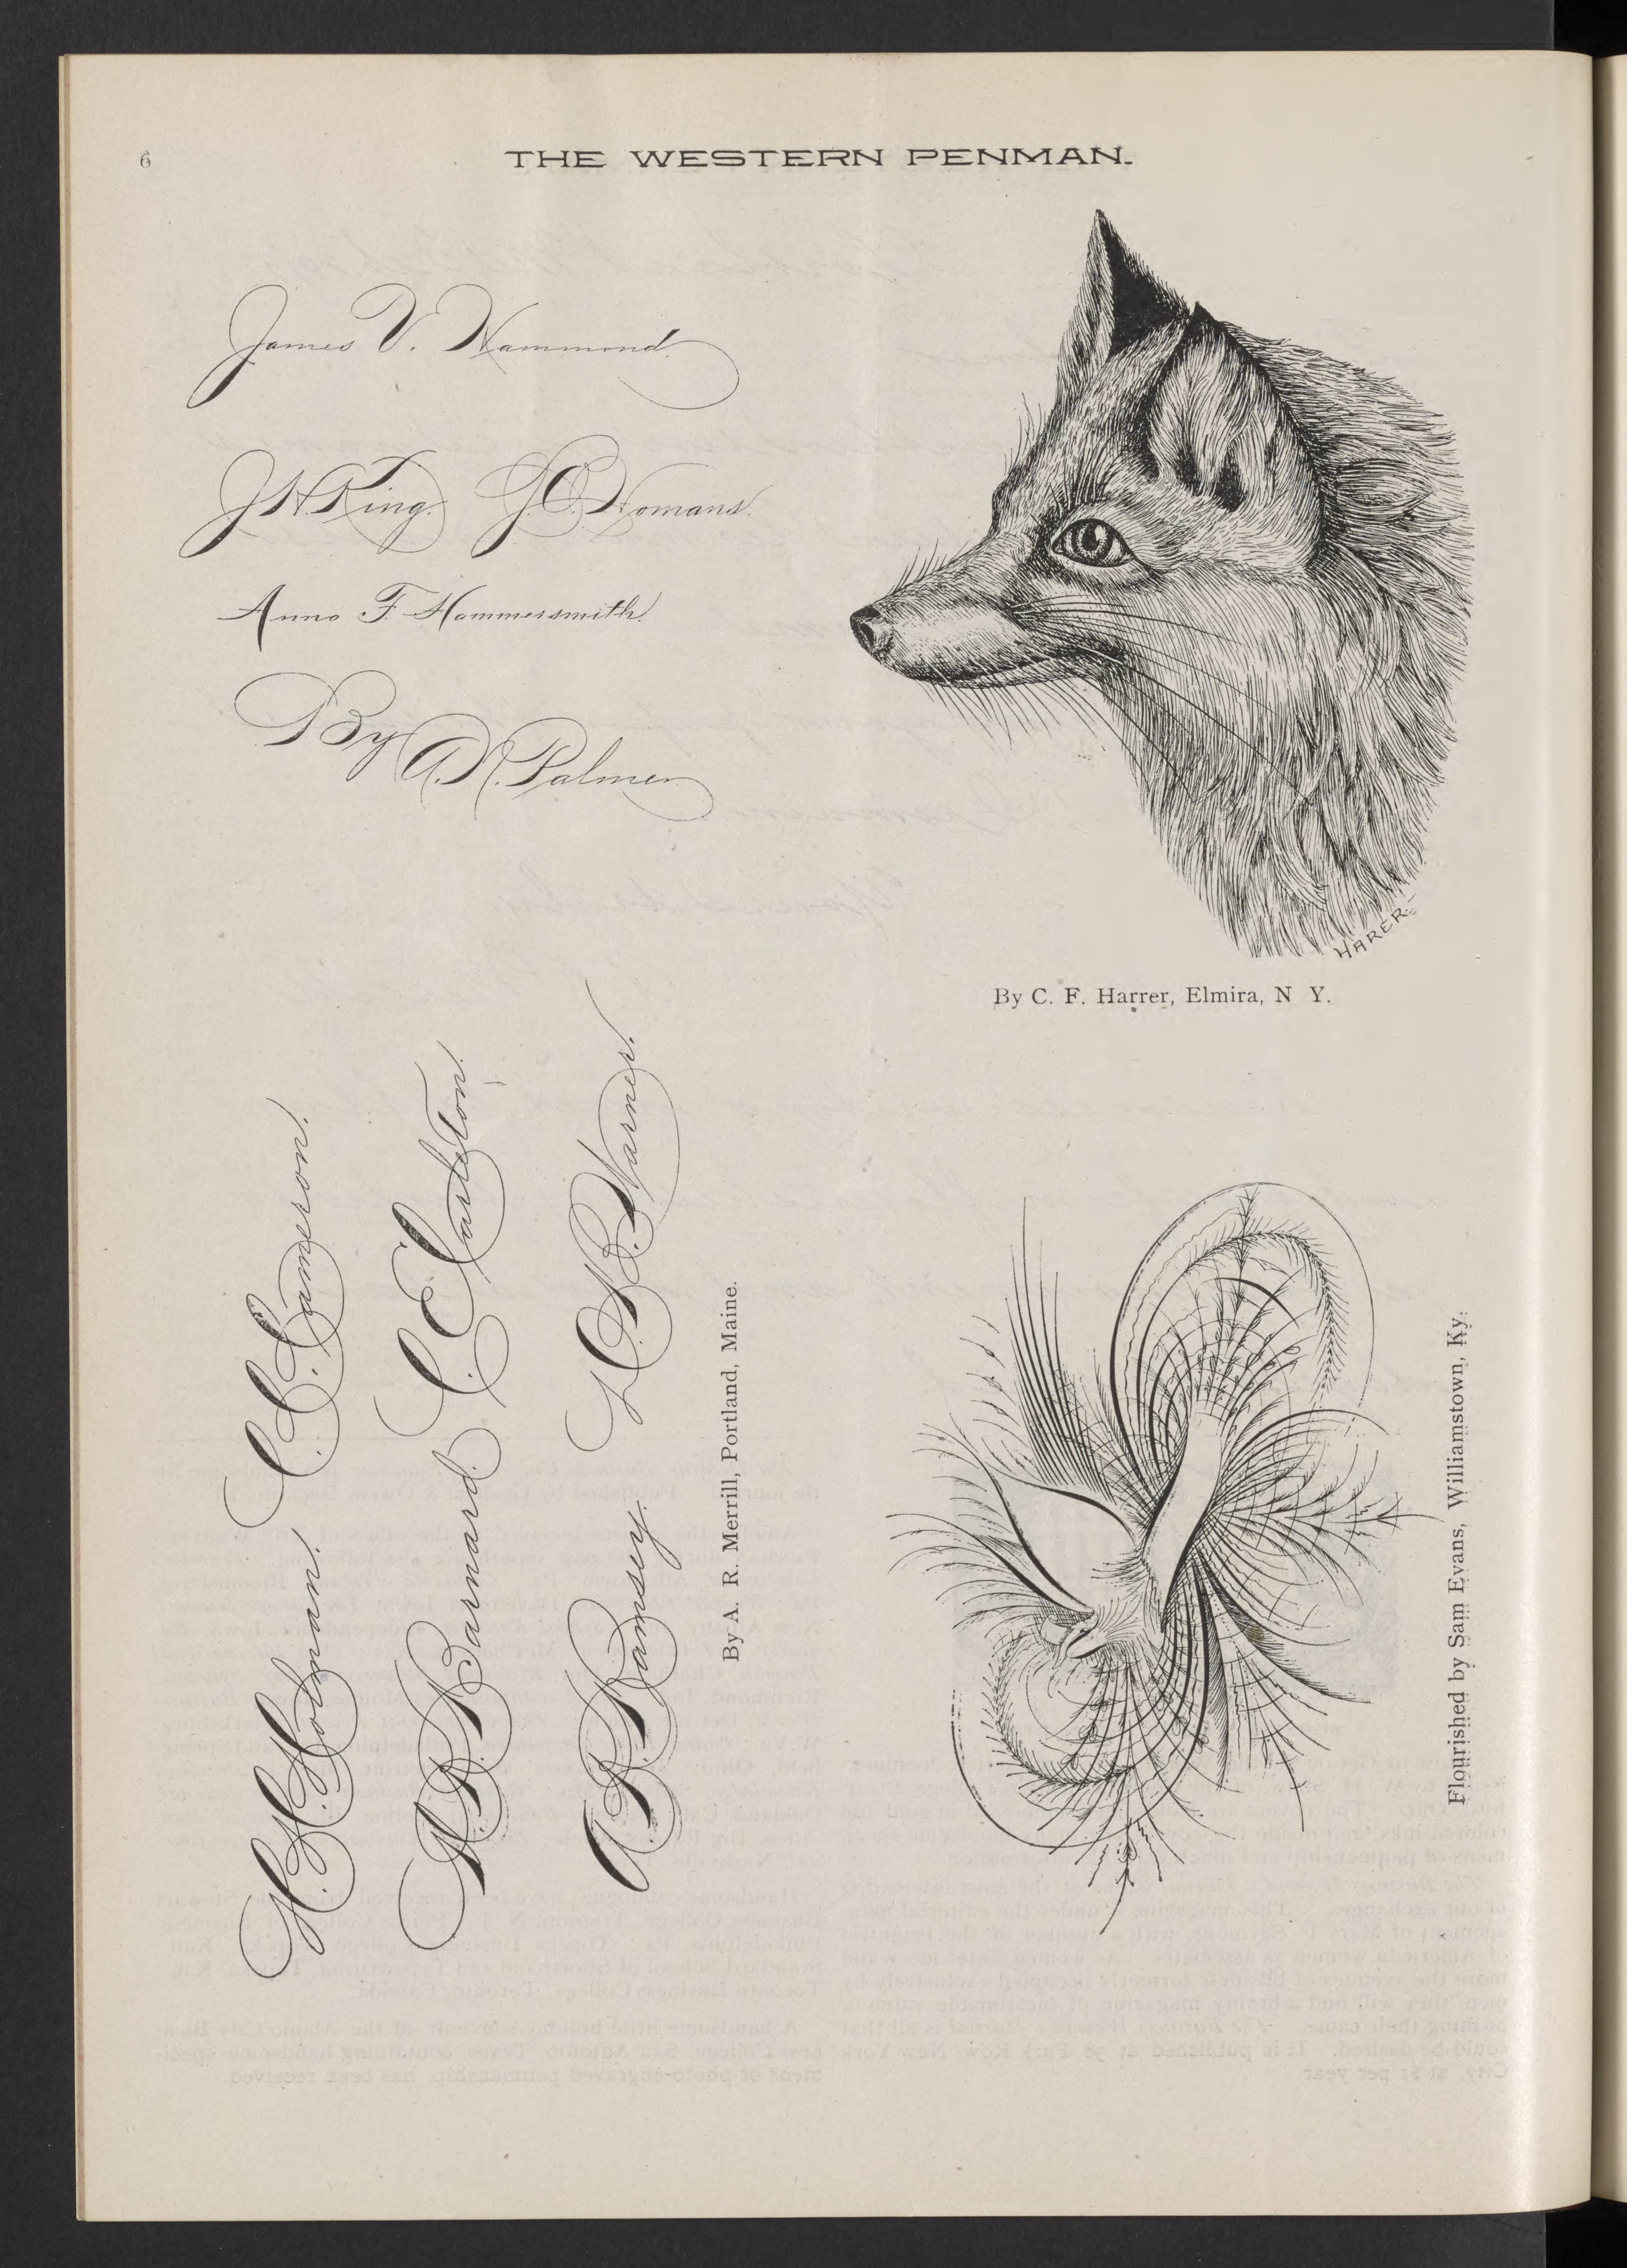 6
THE WESTERN PENMAN.
James V. Hammond.
J. H. King. J. C. Homans.
Anna F. Hammersmith.
By A. N. Palmer
HARER.
By C. F. Harrer, Elmira, N Y.
H. H. Holman. C. C. Cameron.
A. B. Barnard. C. C. Carleton.
A. B. Ramsey. L. B. Warner.
By A. R. Merrill, Portland, Maine.
Flourished by Sam Evans, Williamstown, Ky.